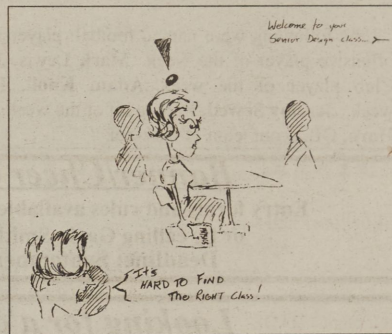 Welcome to your
Senior Design class
It's
HARD TO FIND
The RIGHT Class!